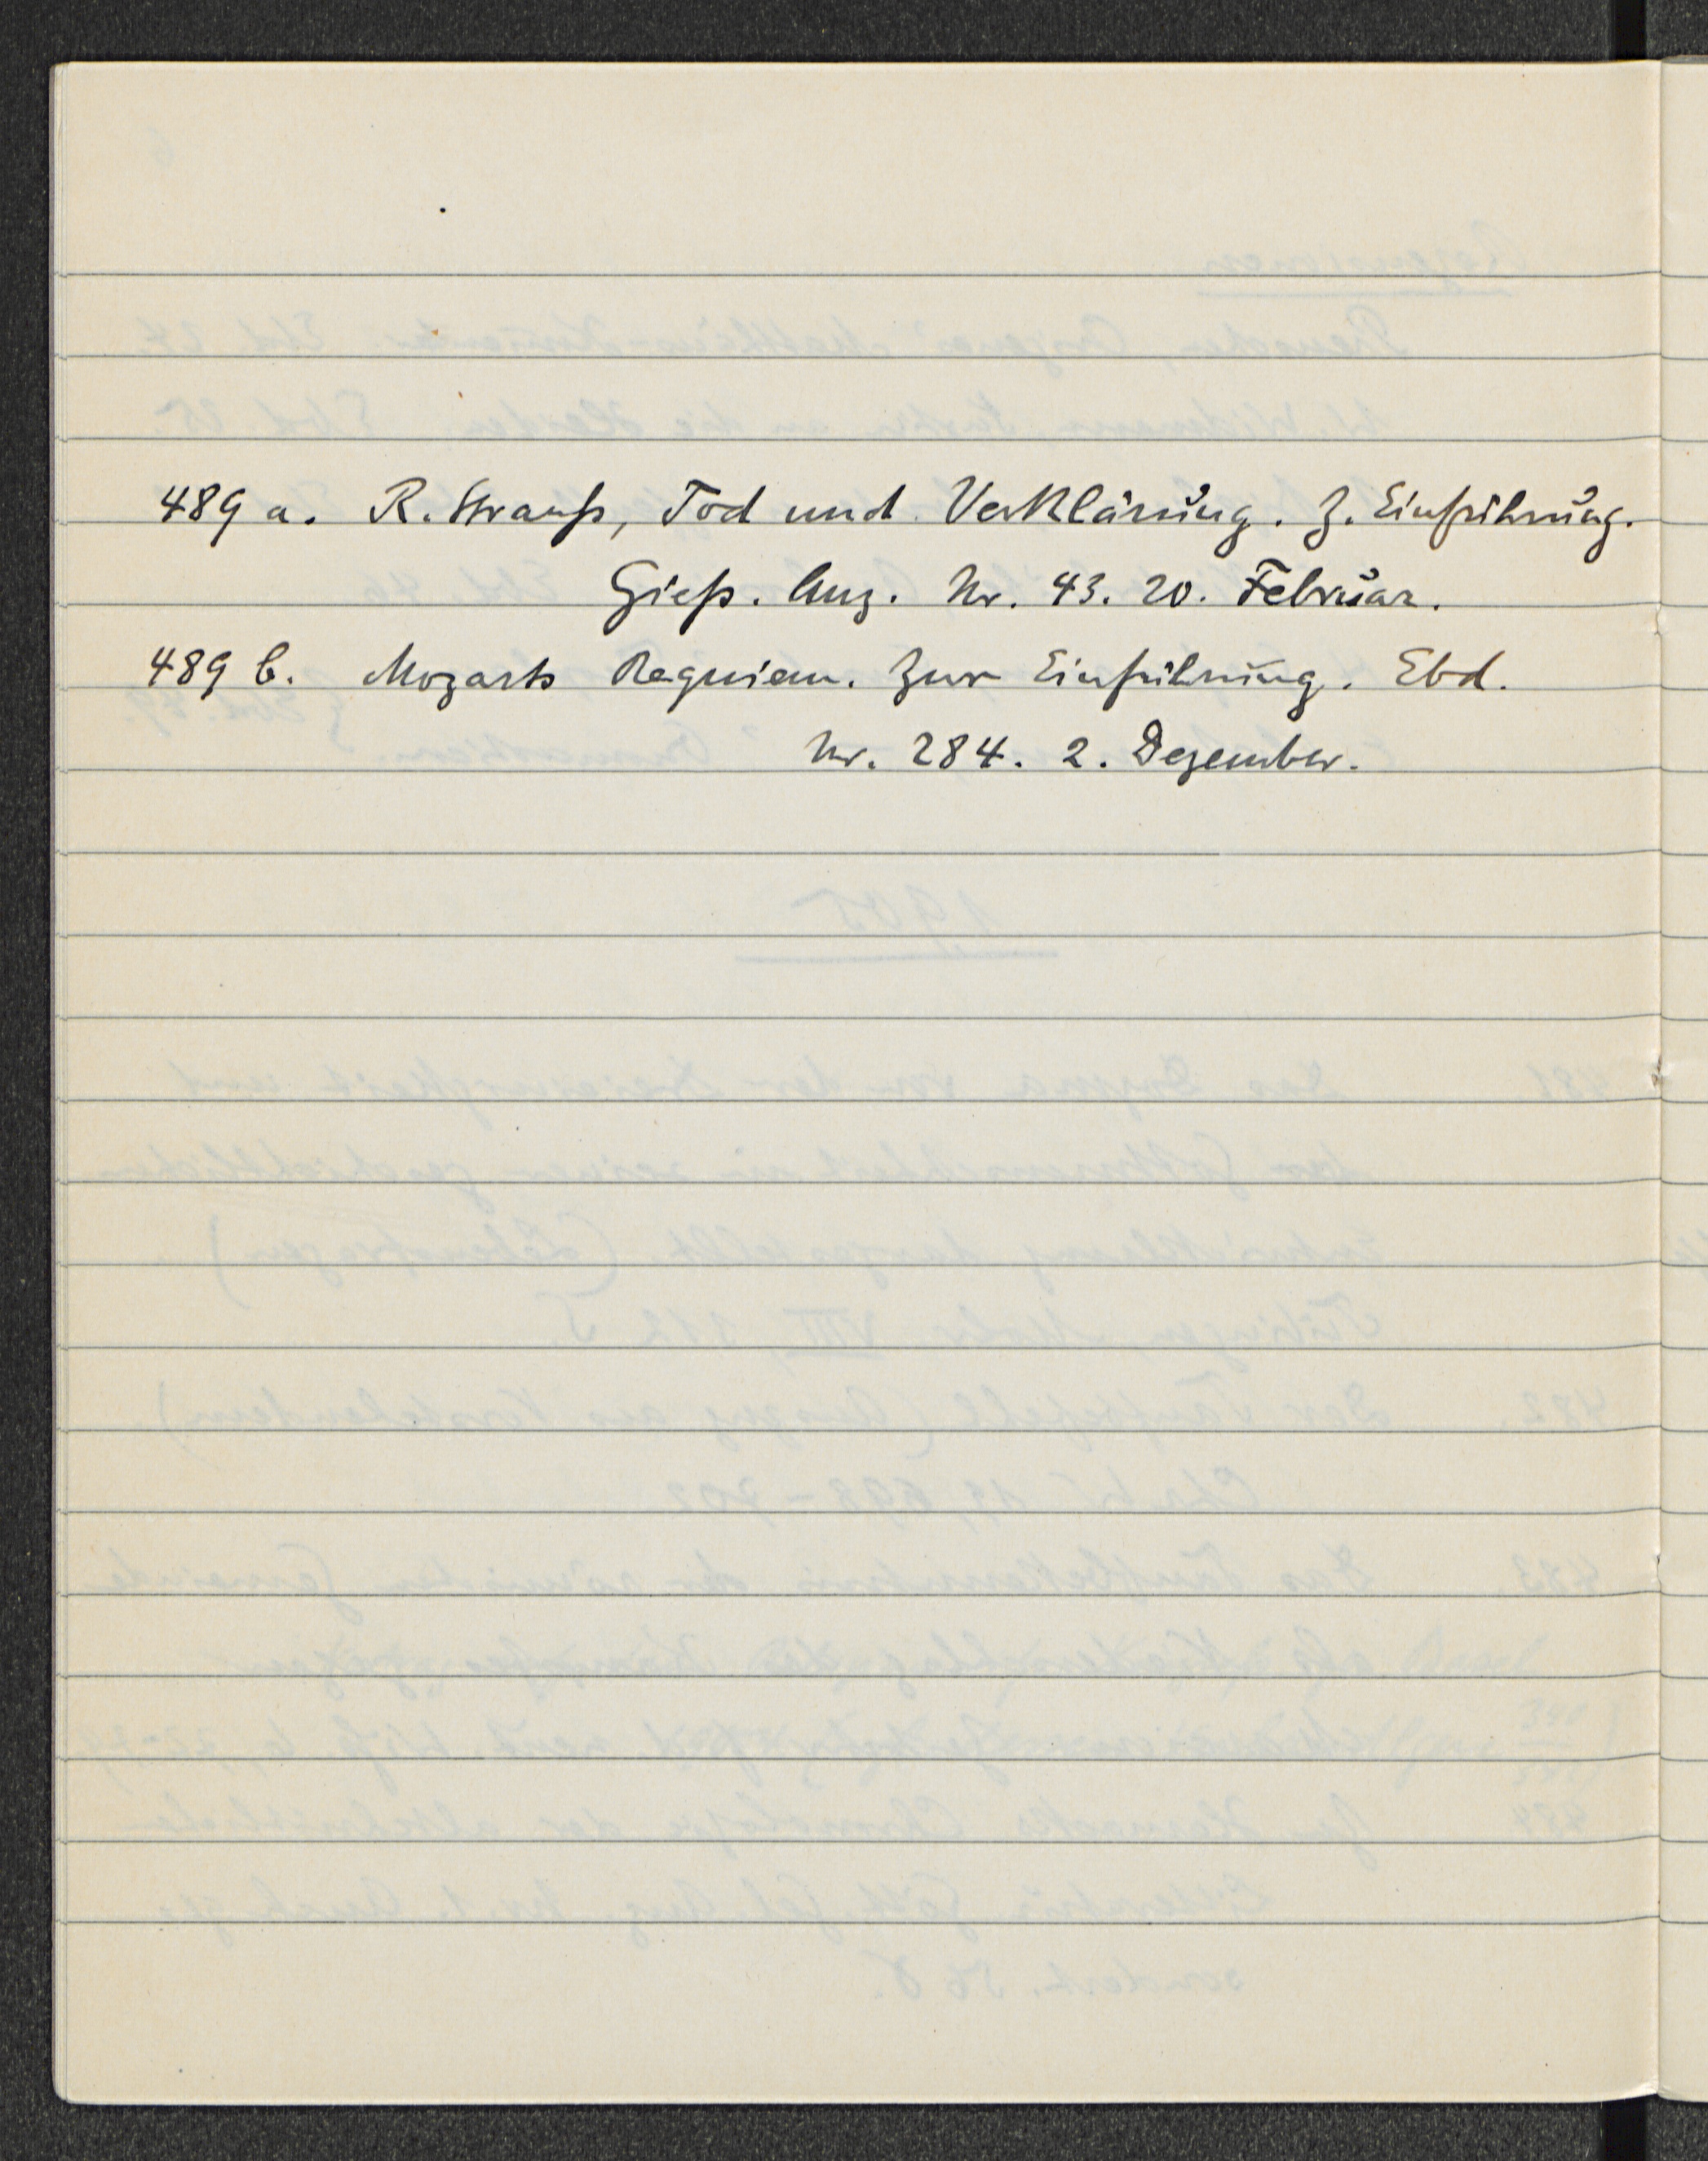 489 a. R. Strauß, Tod und Verklärung. Z. Einführung.
Gieß. Anz. Nr. 43. 20. Februar.
489 b. Mozarts Requiem. Zur Einführung. Ebd.
Nr. 284. 2. Dezember.